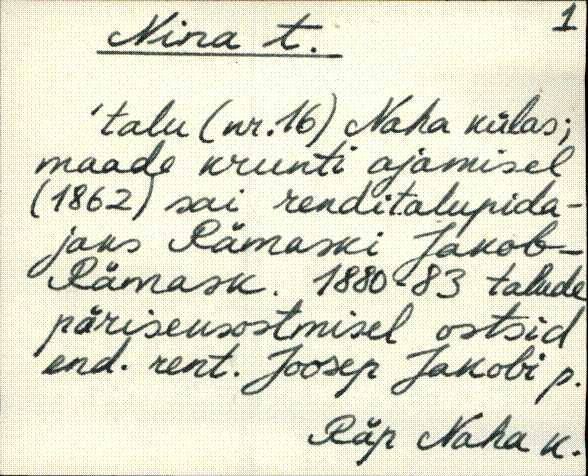 1
Nina t.
'talu (nr. 16) Naha külas;
maade krunti ajamisel
(1862) sai renditalupida-
jaks Rämaski Jakob-
Rämask. 1880-83 talude
päriseksostmisel ostsid
end. rent. Joosep Jakobi p.
Räp Naha k.